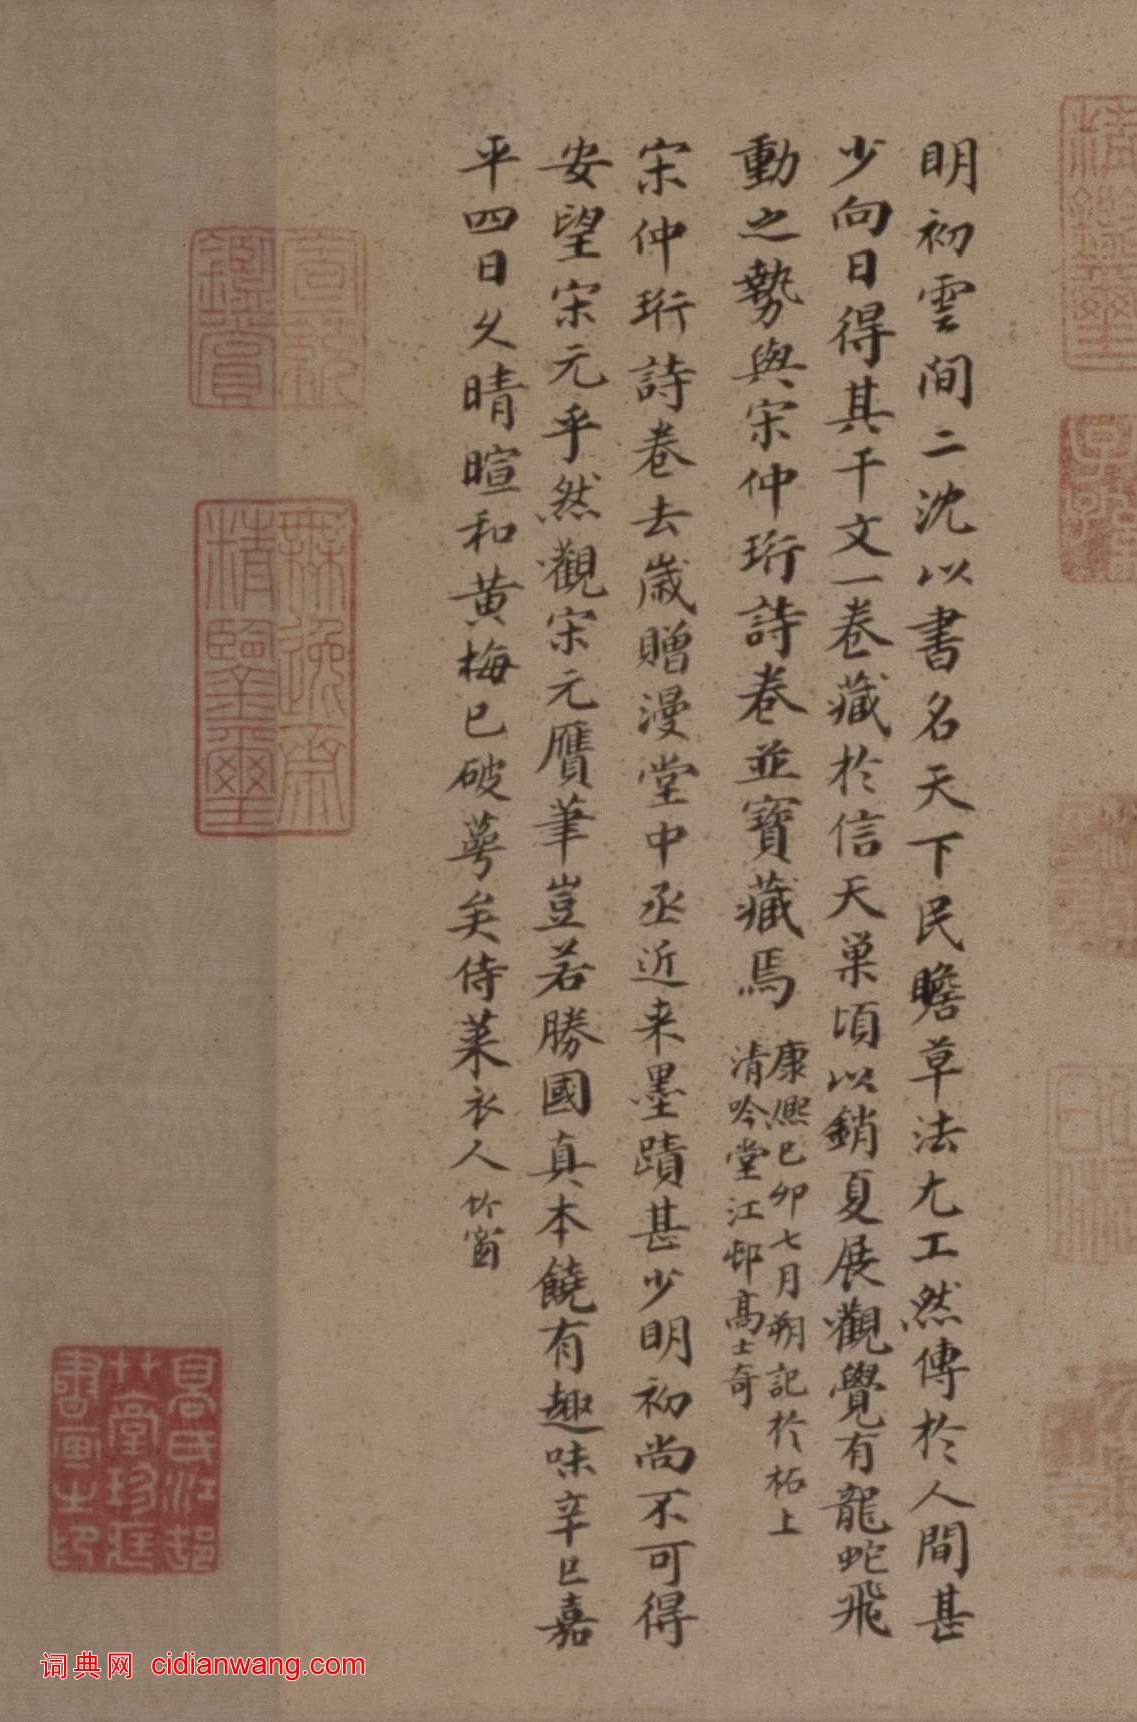 明初雲间二沈以書名天下民瞻草法尤工然傳於人間甚
少向日得其千文一卷藏於信天巢頃以銷夏展觀覺有龍蛇飛
動之勢與宋仲珩詩卷並寶藏焉
康熙己卯七月朔記於柘上
清吟堂江邨高士奇
宋仲珩詩卷去歲贈漫堂中丞近来墨蹟甚少明初尚不可得
安望宋元乎然觀宋元贋筆豈若勝國真本饒有趣味辛巳嘉
平四日久晴暄和黄梅已破萼矣侍萊衣人
竹窗
無逸齋精鑒璽
高氏江邨草堂珍藏書画之印
词典网 cidianwang.com